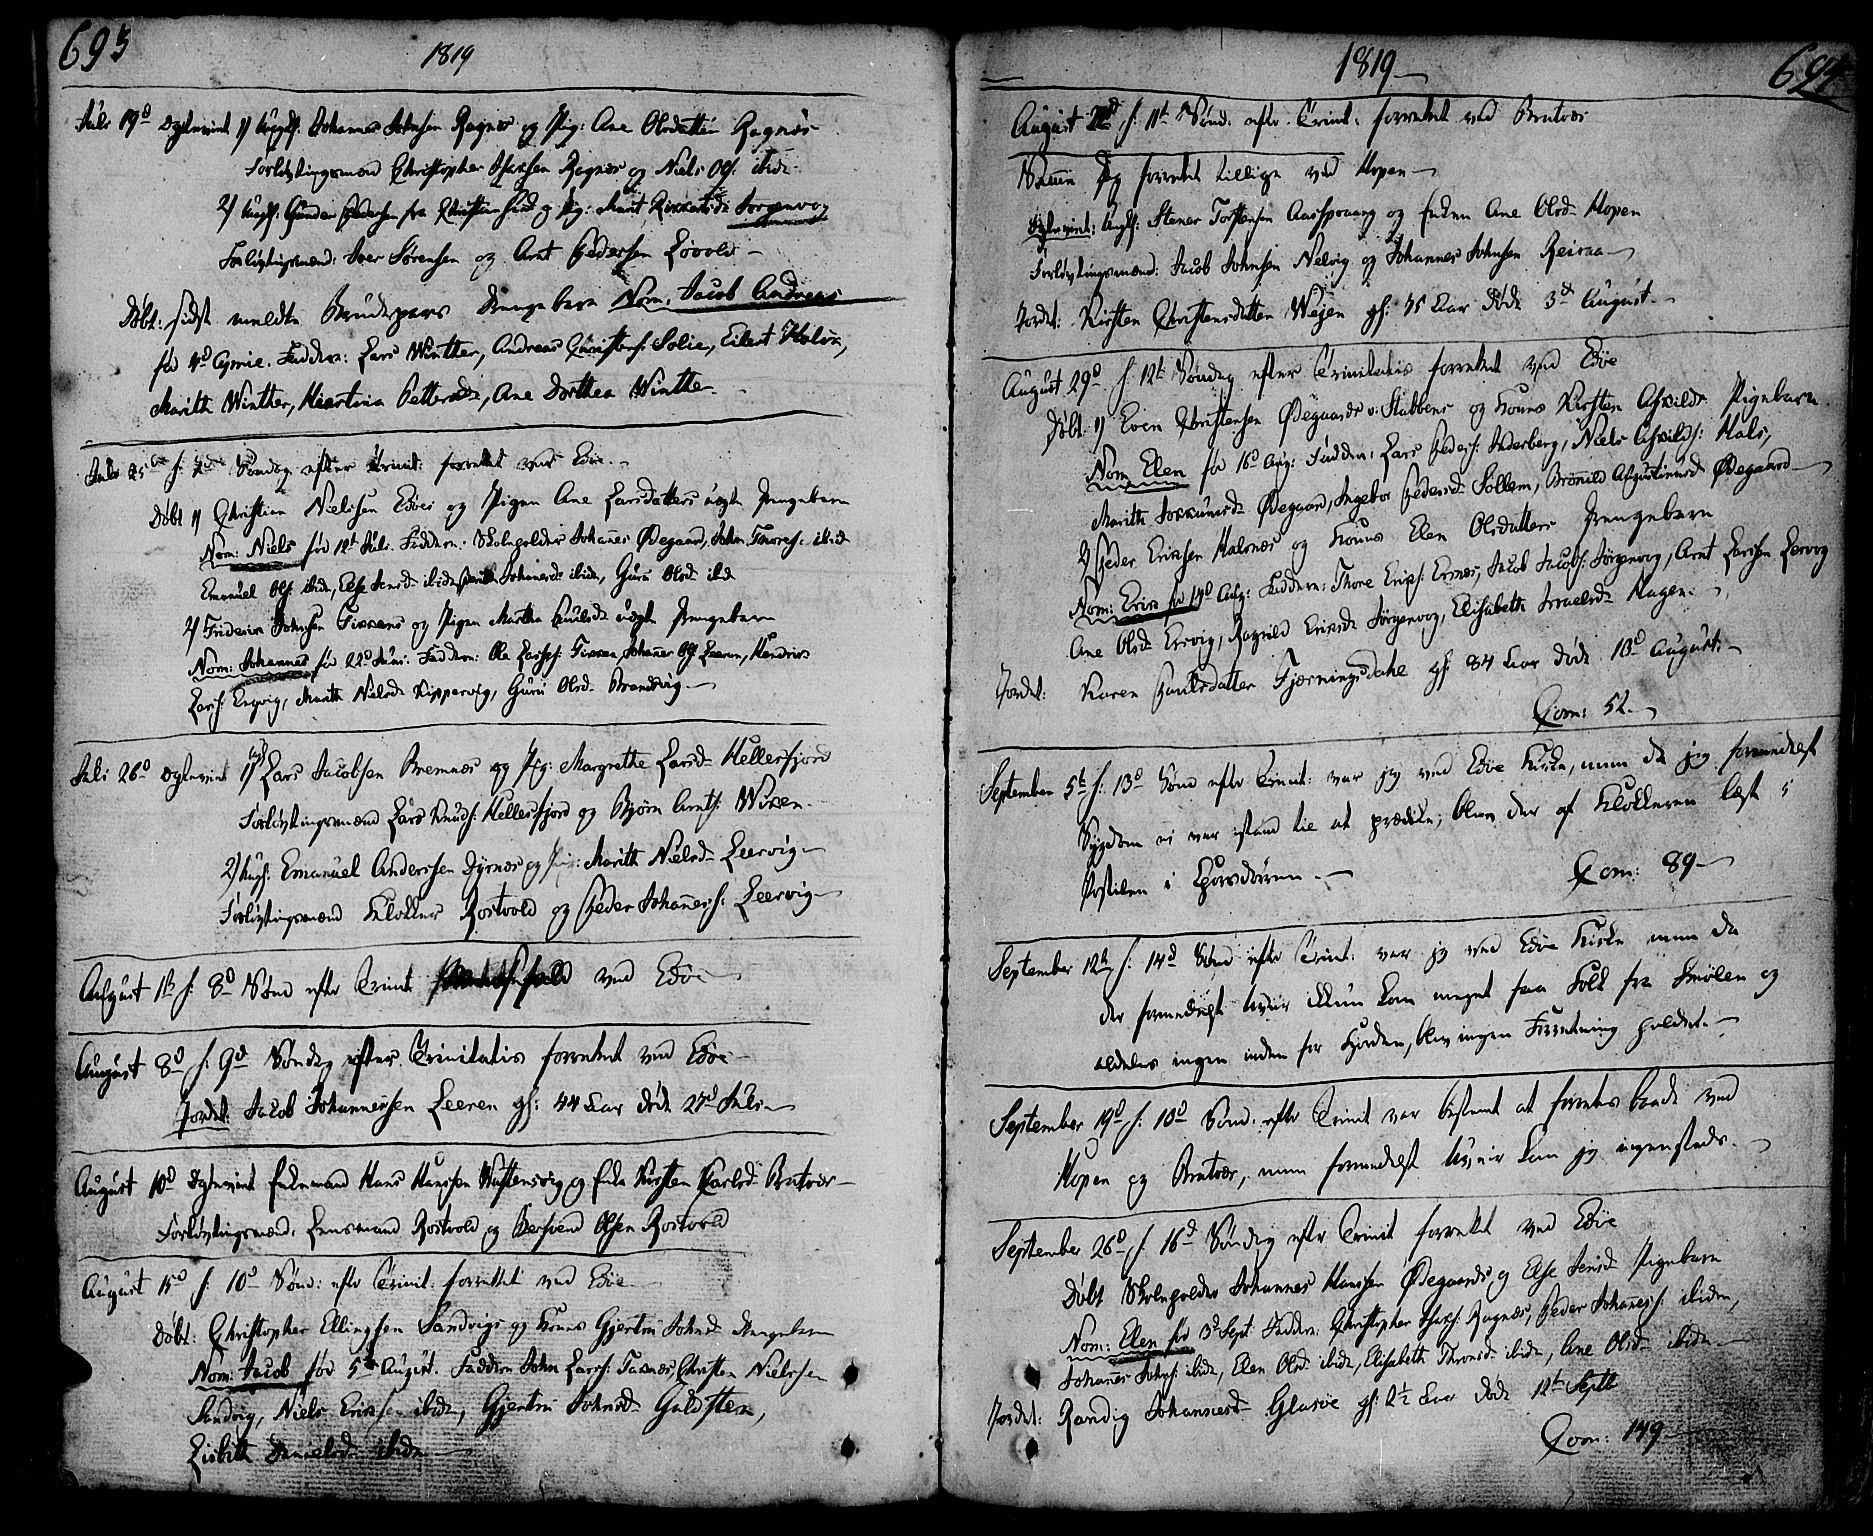 693
1819
Juli 19d Egteviet 1) Ungk: Johannes Johnsen Ragnæs og Pig: Ane Olsdatter Ragnæs
Forlovingsmænd Christopher Isaksen Ragnæs og Niels Ols: ibid.
2) Ungk: Gunder Pedersen fra Christiansund og Pig: Marit Rikkertsd: Jørgenvog
Forlovingsmænd: Iver Sørensen og Arnt Pedersen Lövold
Døbt: sidst meldte Brudepars Drengebarn Nom: Jacob Andreas
fød 4d Faddere: Lars Winther, Andreas Solie, Eilert
Marith Winther, Martina Pettersd:, Ane Dorthea Winther
Juli 25de f: Søndag efter Trinit: forrettet ved Edöe
Døbt 1) Christian Nielssen Edöe og Pigen Ane Larsdatters uægte Drengebarn
Nom: Niels fød 12t Juli. Faddere: Skoleholder Johanes Ødegaard, John Thores: ibid
Emanuel Ols: ibide, Else Jensd: ibide, Johanesd: ibide, Guru Olsd: ibid
2) Friderik Johnsen og Pigen Martha Paulsd: uægte Drengebarn
Nom: Johannes fød 22d Juni. Faddere: Ole Larss: Johanes Ols: Leeren, Hendrik
Larss: Ervig, Marith Nielsd: Kippervig, Guru Olsd: Brandvig
Juli 26d Egteviet 1) Ungk: Lars Jacobsen Bremnæs og Pig: Margrethe Larsd: Hellersfjord
Forlovingsmænd Lars Knuds: Hellersfjord og Bjørn Arnts: Wiken
2) Ungk: Emanuel Anderssen Dyrnæs og Pig: Marith Nielsd: Leervig
Forlovingsmænd Klokker Rostvold og Peder Johaness: Leervig
August 1t f: 8d Sønd: efter Trinit ved Edöe
August 8d f: 9d Søndag efter Trinitatis forrettet ved Edöe
Jordet: Jacob Johannessen Leeren gl: 44 Aar døde 27d Juli
August 10d Egteviet Enkemand Hans Hanssen og Enke Kirsten Carlsd: Bratvær
Forlovingsmænd: Lensmand Rostvold og Olsen Rostvold
August 15d f: 10d Sønd: eftr Trinit: forrettet ved Edöe
Døbt: Christopher Ellingsen Sandvigs og Kones Gjertru Johnsd: Drengebarn
Nom: Jacob fød 5te August. Faddere John Larss: Taknæs, Christen Nielssen
Sandvig, Niels Eriksen ibide, Gjertru Johnsd: Guldsten,
Lisbeth Danielsd: ibide
1819
694
August 22d f: 11t Sønd: eftr Trinit: forrettet ved Bratvær
Samme Dag forrettet tillige ved Hopen
Egteviet: Ungk: Stener Torstensen og Enken Ane Olsd: Hopen
Forlovingsmænd: Jacob Johnsen Nelvig og Johannes Johnsen Reiraa
Jordet: Kirsten Christensdatter Wejen gl: 75 Aar døde 3d August
August 29d f: 12t Søndag efter Trinitatis forrettet ved Edöe
Døbt 1) Even Christensen Ødegaards v: Stabben og Kones Kirsten Askilds: Pigebarn
Nom Elen fød 16d Aug: Faddere: Lars Peders: Sæterberg, Niels Askilds: Hals,
Marith Ødegaard, Ingebor Pedersd: Sollem, Brønild Augustinusd: Ødegaard
2) Peder Eriksen Halsnæs og Kones Elen Olsdatters Drengebarn
Nom: Erik fød 14d Aug: Faddere: Thore Eriks: Ernæs, Jacob Jacobs: Jørgenvog, Arnt Larssen Lervog
Ane Olsd: Ervig, Ragnild Eriksd: Jørgenvog, Elisabeth Israelsd: Hagen
Jordet: Karen Paulsdatter Fjærningsdahl gl: 84 Aar døde 18d August
Com: 52
September 5te f: 13d Sønd eftr Trinit: var jeg ved Edöe Kirke, men da jeg formedelst
Sygdom ei var istand til at prædike, blev der af Klokkeren læst i
Postilen i Chorsdørren. Com: 89
September 12te f: 14d Sønd eftr Trinit: var jeg ved Edöe Kirke men da
der formedelst Uveir ikkun kom meget faa Folk fra Smölen og
aldeles ingen inden for Fjorden, blev ingen Forretning holdet.
September 19d f: 10d Sønd. eftr Trinit var bestemt at forrettes baade ved
Hopen og Bratvær, men formedelst Uveir kom jeg ingensteds.
September 26d f: 16d Søndag eftr Trinit forrettet ved Edöe
Døbt Skoleholder Johannes Hanssen Ødegaards, og Else Jensd: Pigebarn
Nom: Elen fød 3d Sept. Faddere: Christopher Isaks: Ragnæs, Peder Johaness: ibiden,
Johanes Johns: ibide, Elen Olsd: ibide, Elisabeth Thronsd: ibide, Ane Olsd: ibide
Jordet: Randig Johannesd: Glasöe gl: 2½ Aar døde 12te Septb
Com: 149